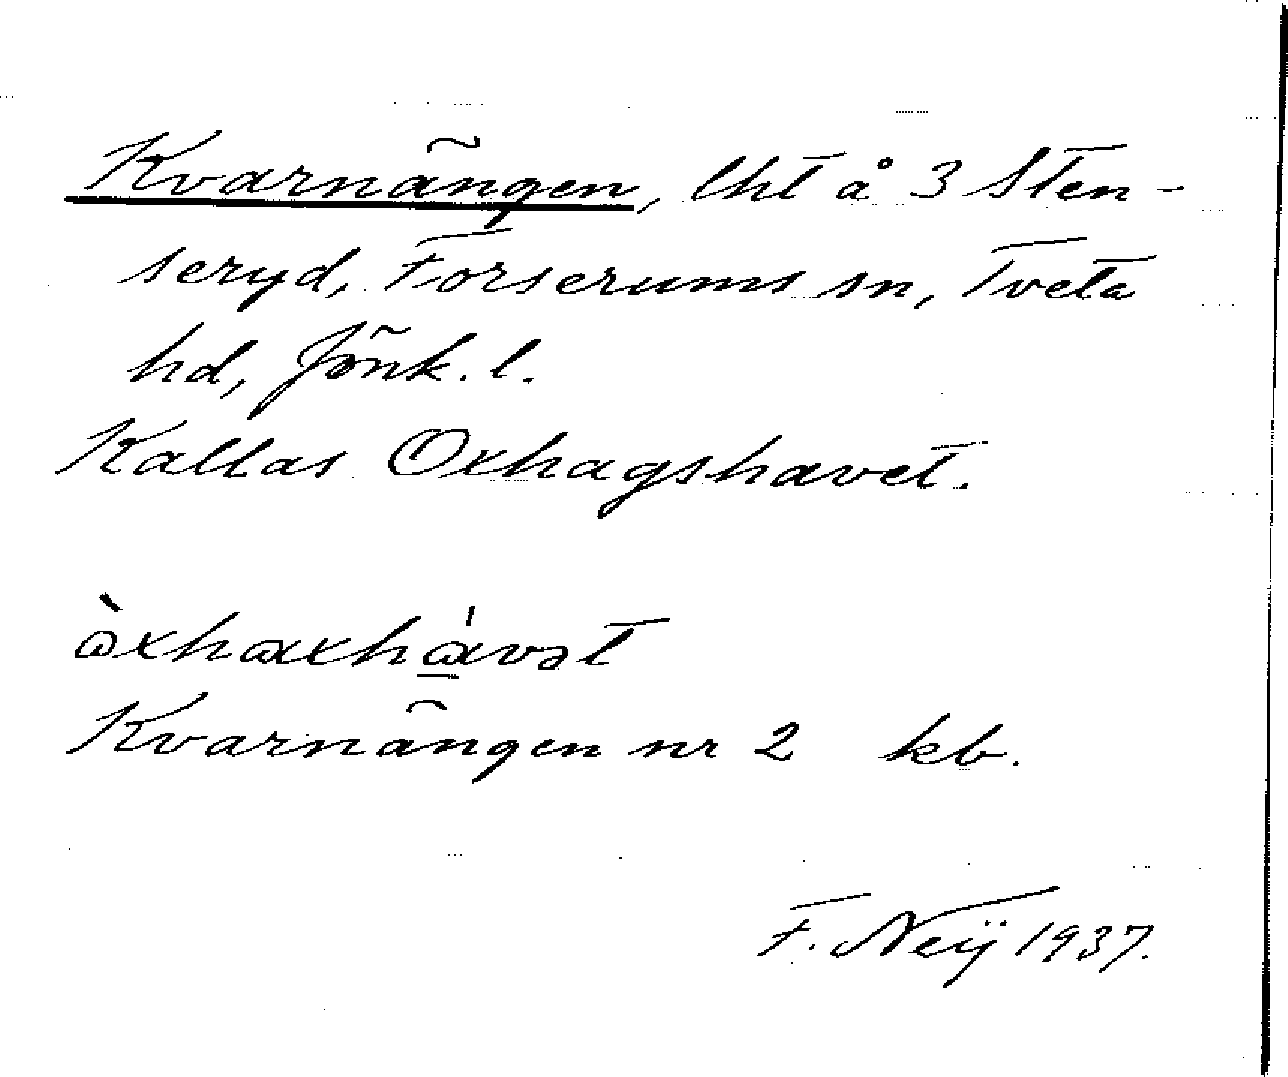 Kvarnängen, lht å 3 Sten-
seryd, Forserums sn, Tveta
hd, Jönk. l.
Kallas Oxhagshavet.
òxhaxhávət
Kvarnängen nr 2 kb.
F. Neÿ 1937.